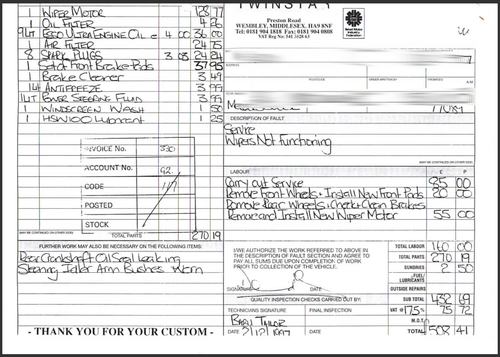 1 WIPER MOTOR 128 77
1 OIL FILTER 4 26
9LT ESSO ULTRA ENGINE OIL @ 4 00 36 00
1 AIR FILTER 24 75
8 SPARK PLUGS 3 03 24 24
1 Set of Front Brake Pads 37 95
1 Brake Cleaner 3 49
1LT ANTIFREEZE 3 99
1LT POWER STEERING FLUID 3 99
1 WINDSCREEN WASH 1 50
1 1 25
INVOICE No. 330
ACCOUNT No. 92
CODE
POSTED
STOCK
MAY BE CONTINUED ON OTHER SIDE
TOTAL PARTS 270 19
FURTHER WORK MAY ALSO BE NECESSARY ON THE FOLLOWING ITEMS:
Rear Crankshaft Oil Seal Leaking
Steering Idler Arm Bushes Worn
- THANK YOU FOR YOUR CUSTOM -
TWINSTAR
Preston Road
WEMBLEY, MIDDLESEX, HA9 8NF
Tel: 0181 904 1818 Fax: 0181 904 0808
DESCRIPTION OF FAULT
Service
Wipers Not Functioning
MAY BE CONTINUED ON OTHER SIDE
LABOUR £ P
Carry out Service 85 00
Remove Front Wheels + Install New Front Pads 20 00
Remove Rear Wheels + Check + Clean Brakes
Remove and Install New Wiper Motor 55 00
I/WE AUTHORIZE THE WORK REFERRED TO ABOVE IN
THE DESCRIPTION OF FAULT SECTION AND AGREE TO
PAY ALL SUMS DUE UPON COMPLETION OF WORK
PRIOR TO COLLECTION OF THE VEHICLE.
TOTAL LABOUR 160 00
TOTAL PARTS 270 19
SUNDRIES 2 50
FUEL/
LUBRICANTS
OUTSIDE REPAIRS
QUALITY INSPECTION CHECKS CARRIED OUT BY:
SUB TOTAL 432 69
TECHNICIANS SIGNATURE FINAL INSPECTION
VAT @ 17.5% 75 72
M.O.T.
TOTAL 508 41